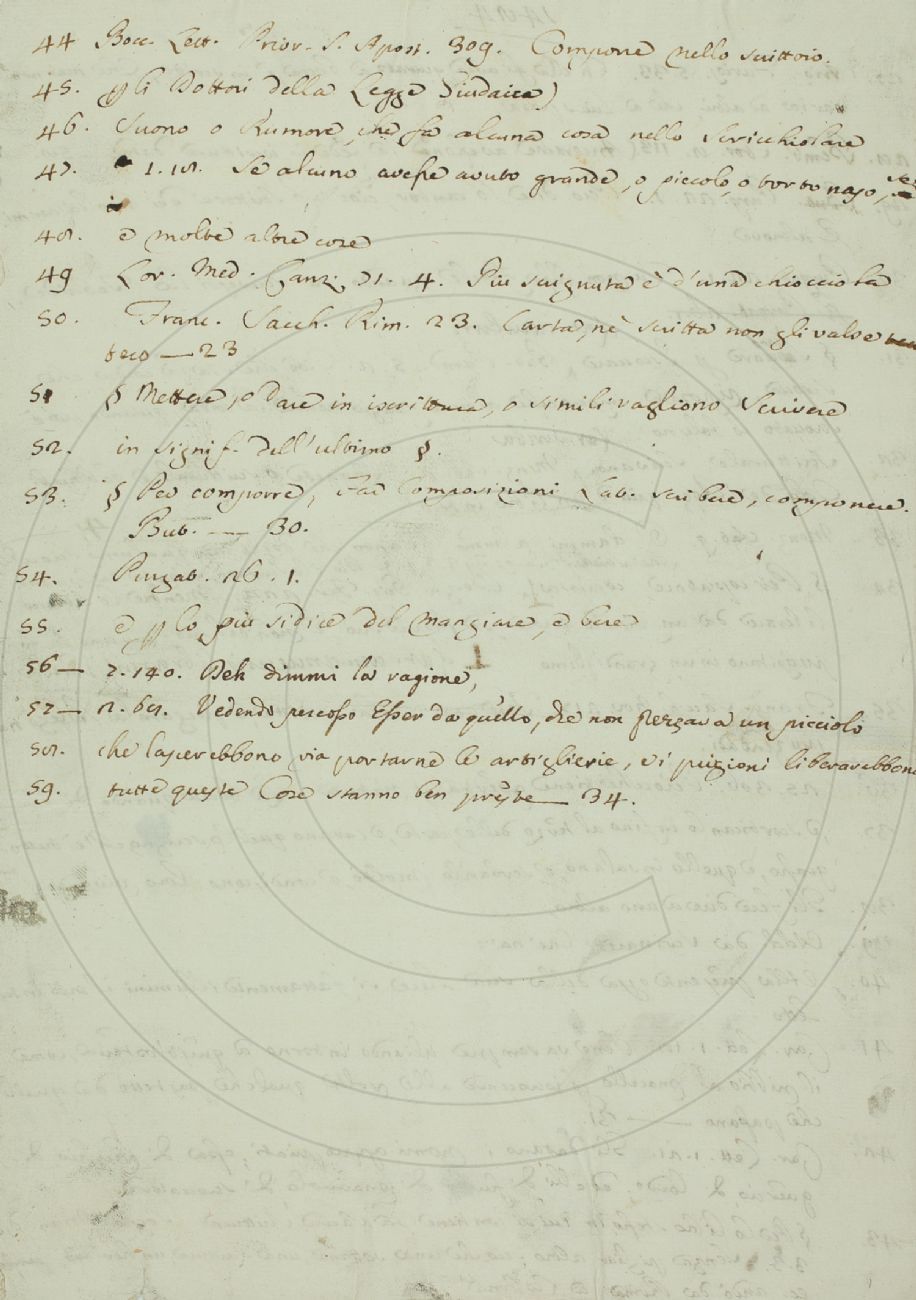 44 Bocc. Lett. Prior. S. Apost. 309. Comporre nello scrittoio.
45. p̱li Dottori della Legge Giudaica)
46. Suono o Rumore, che fa alcuna cosa nello Scricchiolare
47. 1.18. Se alcuno avesse avuto grande, o piccolo, o torto naso,
48. e molte altre cose
49 Lor. Med. Canz. 71. 4. Più scrignuta è d'una chiocciola
50. Franc. Sacch. Rim. 23. Carta, nè scritta non gli vale
teco — 23
51 § Mettere, o Dare in iscrittura, o simili vagliono Scrivere
52. in signif. dell'ultimo §.
53. § Per comporre, Far Composizioni Lat. scribere, componere.
But. — 30.
54. Purgat. 26. 1.
55. e p̱ lo più si dice del mangiare, e bere
56 — 2.140. Deh dimmi la ragione,
57 — 2. 69. Vedendo percosso Esser da quello, che non prezzava un picciolo
58. che lascerebbono via portarne le artiglierie, e i prigioni liberarebbono
59. tutte queste Cose stanno ben — 34.